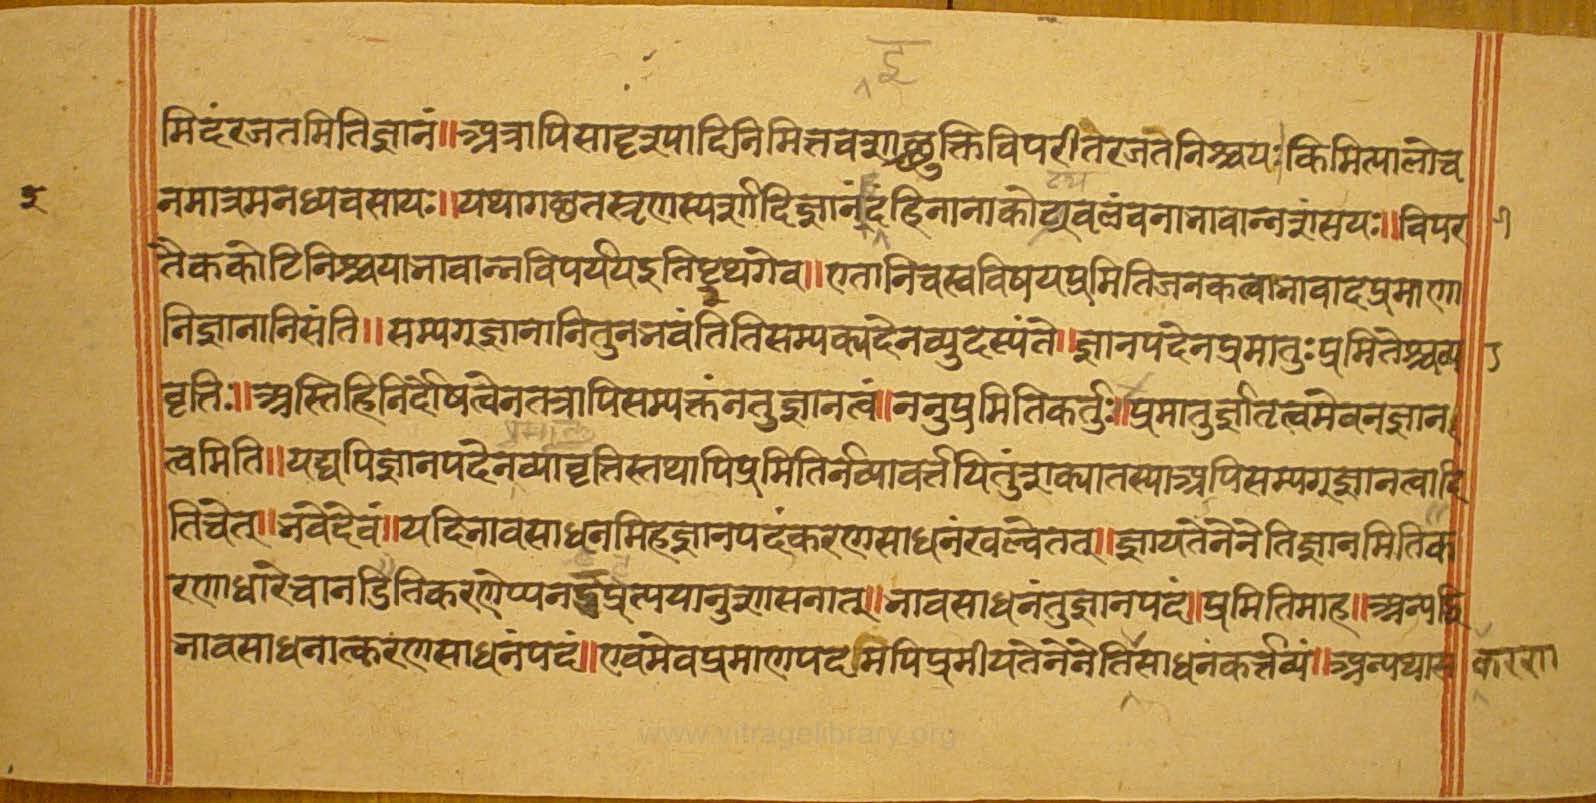 इ
मिदंरजतमितिज्ञानं॥अत्रापिसादृश्यादिनिमित्तवशाच्छुक्तिविपरीतेरजतेनिश्चयः किमित्यालोच
नमात्रमनध्यवसायः॥यथागच्छतस्तृणस्पर्शादिज्ञानंइदंहिनानाकोट्यवलंबनाभावान्नसंशयः॥विपर
तैककोटिनिश्चयाभावान्नविपर्ययइतिपृथगेव॥एतानिचस्वविषयप्रमितिजनकत्वाभावादप्रमाणा
निज्ञानानिसंति॥सम्यग्ज्ञानानितुनभवंतितिसम्यक्पदेनव्युदस्यंते॥ज्ञानपदेनप्रमातुःप्रमितेश्चव्या
वृत्तिः॥अस्तिहिनिर्दोषत्वेनतत्रापिसम्यक्त्वंनतुज्ञानत्वं॥ननुप्रमितिकर्तुः॥प्रमातुर्ज्ञातृत्वमेवनज्ञान
त्वमिति॥यद्यपिज्ञानपदेनव्यावृत्तिस्तथापिप्रमितिर्नव्यावर्त्तयितुंशक्यातस्याअपिसम्यग्ज्ञानत्वादि
तिचेत्॥भवेदेवं॥यदिभावसाधनमिहज्ञानपदंकरणसाधनंखल्वेतत्॥ज्ञायतेनेनेतिज्ञानमितिक
रणाधारेचानडितिकरणेप्यनट्प्रत्ययानुशासनात्॥भावसाधनंतुज्ञानपदं॥प्रमितिमाह॥अन्यद्धि
भावसाधनात्करणसाधनंपदं॥एवमेवप्रमाणपदमपिप्रमीयतेनेनेतिसाधनंकर्त्तव्यं॥अन्यथास करण
www.vitragelibrary.org